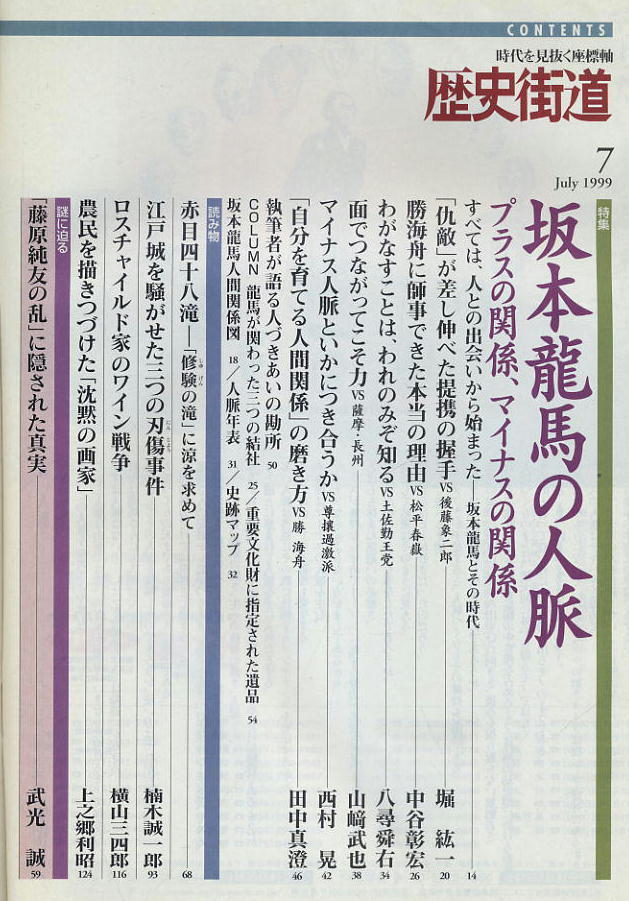 CONTENTS
時代を見抜く座標軸
歴史街道
7
July 1999
特集
坂本龍馬の人脈
プラスの関係、マイナスの関係
すべては、人との出会いから始まった 坂本龍馬とその時代 14
「仇敵」が差し伸べた提携の握手 VS 後藤象二郎 堀 紘一 20
勝海舟に師事できた本当の理由 VS 松平春嶽 中谷彰宏 26
わがなすことは、われのみぞ知る VS 土佐勤王党 八尋舜右 34
面でつながってこそ力 VS 薩摩・長州 山﨑武也 38
マイナス人脈といかにつき合うか VS 尊攘過激派 西村 晃 42
「自分を育てる人間関係」の磨き方 VS 勝 海舟 田中真澄 46
執筆者が語る人づきあいの勘所 50
COLUMN 龍馬が関わった三つの結社 25/重要文化財に指定された遺品 54
坂本龍馬人間関係図 18/人脈年表 31/史跡マップ 32
読み物
赤目四十八滝―「修験の滝」に涼を求めて 68
しゅ げん
江戸城を騒がせた三つの刃傷事件 楠木誠一郎 93
にん じょう
ロスチャイルド家のワイン戦争 横山三四郎 116
農民を描きつづけた「沈黙の画家」 上之郷利昭 124
謎に迫る
「藤原純友の乱」に隠された真実 武光 誠 59